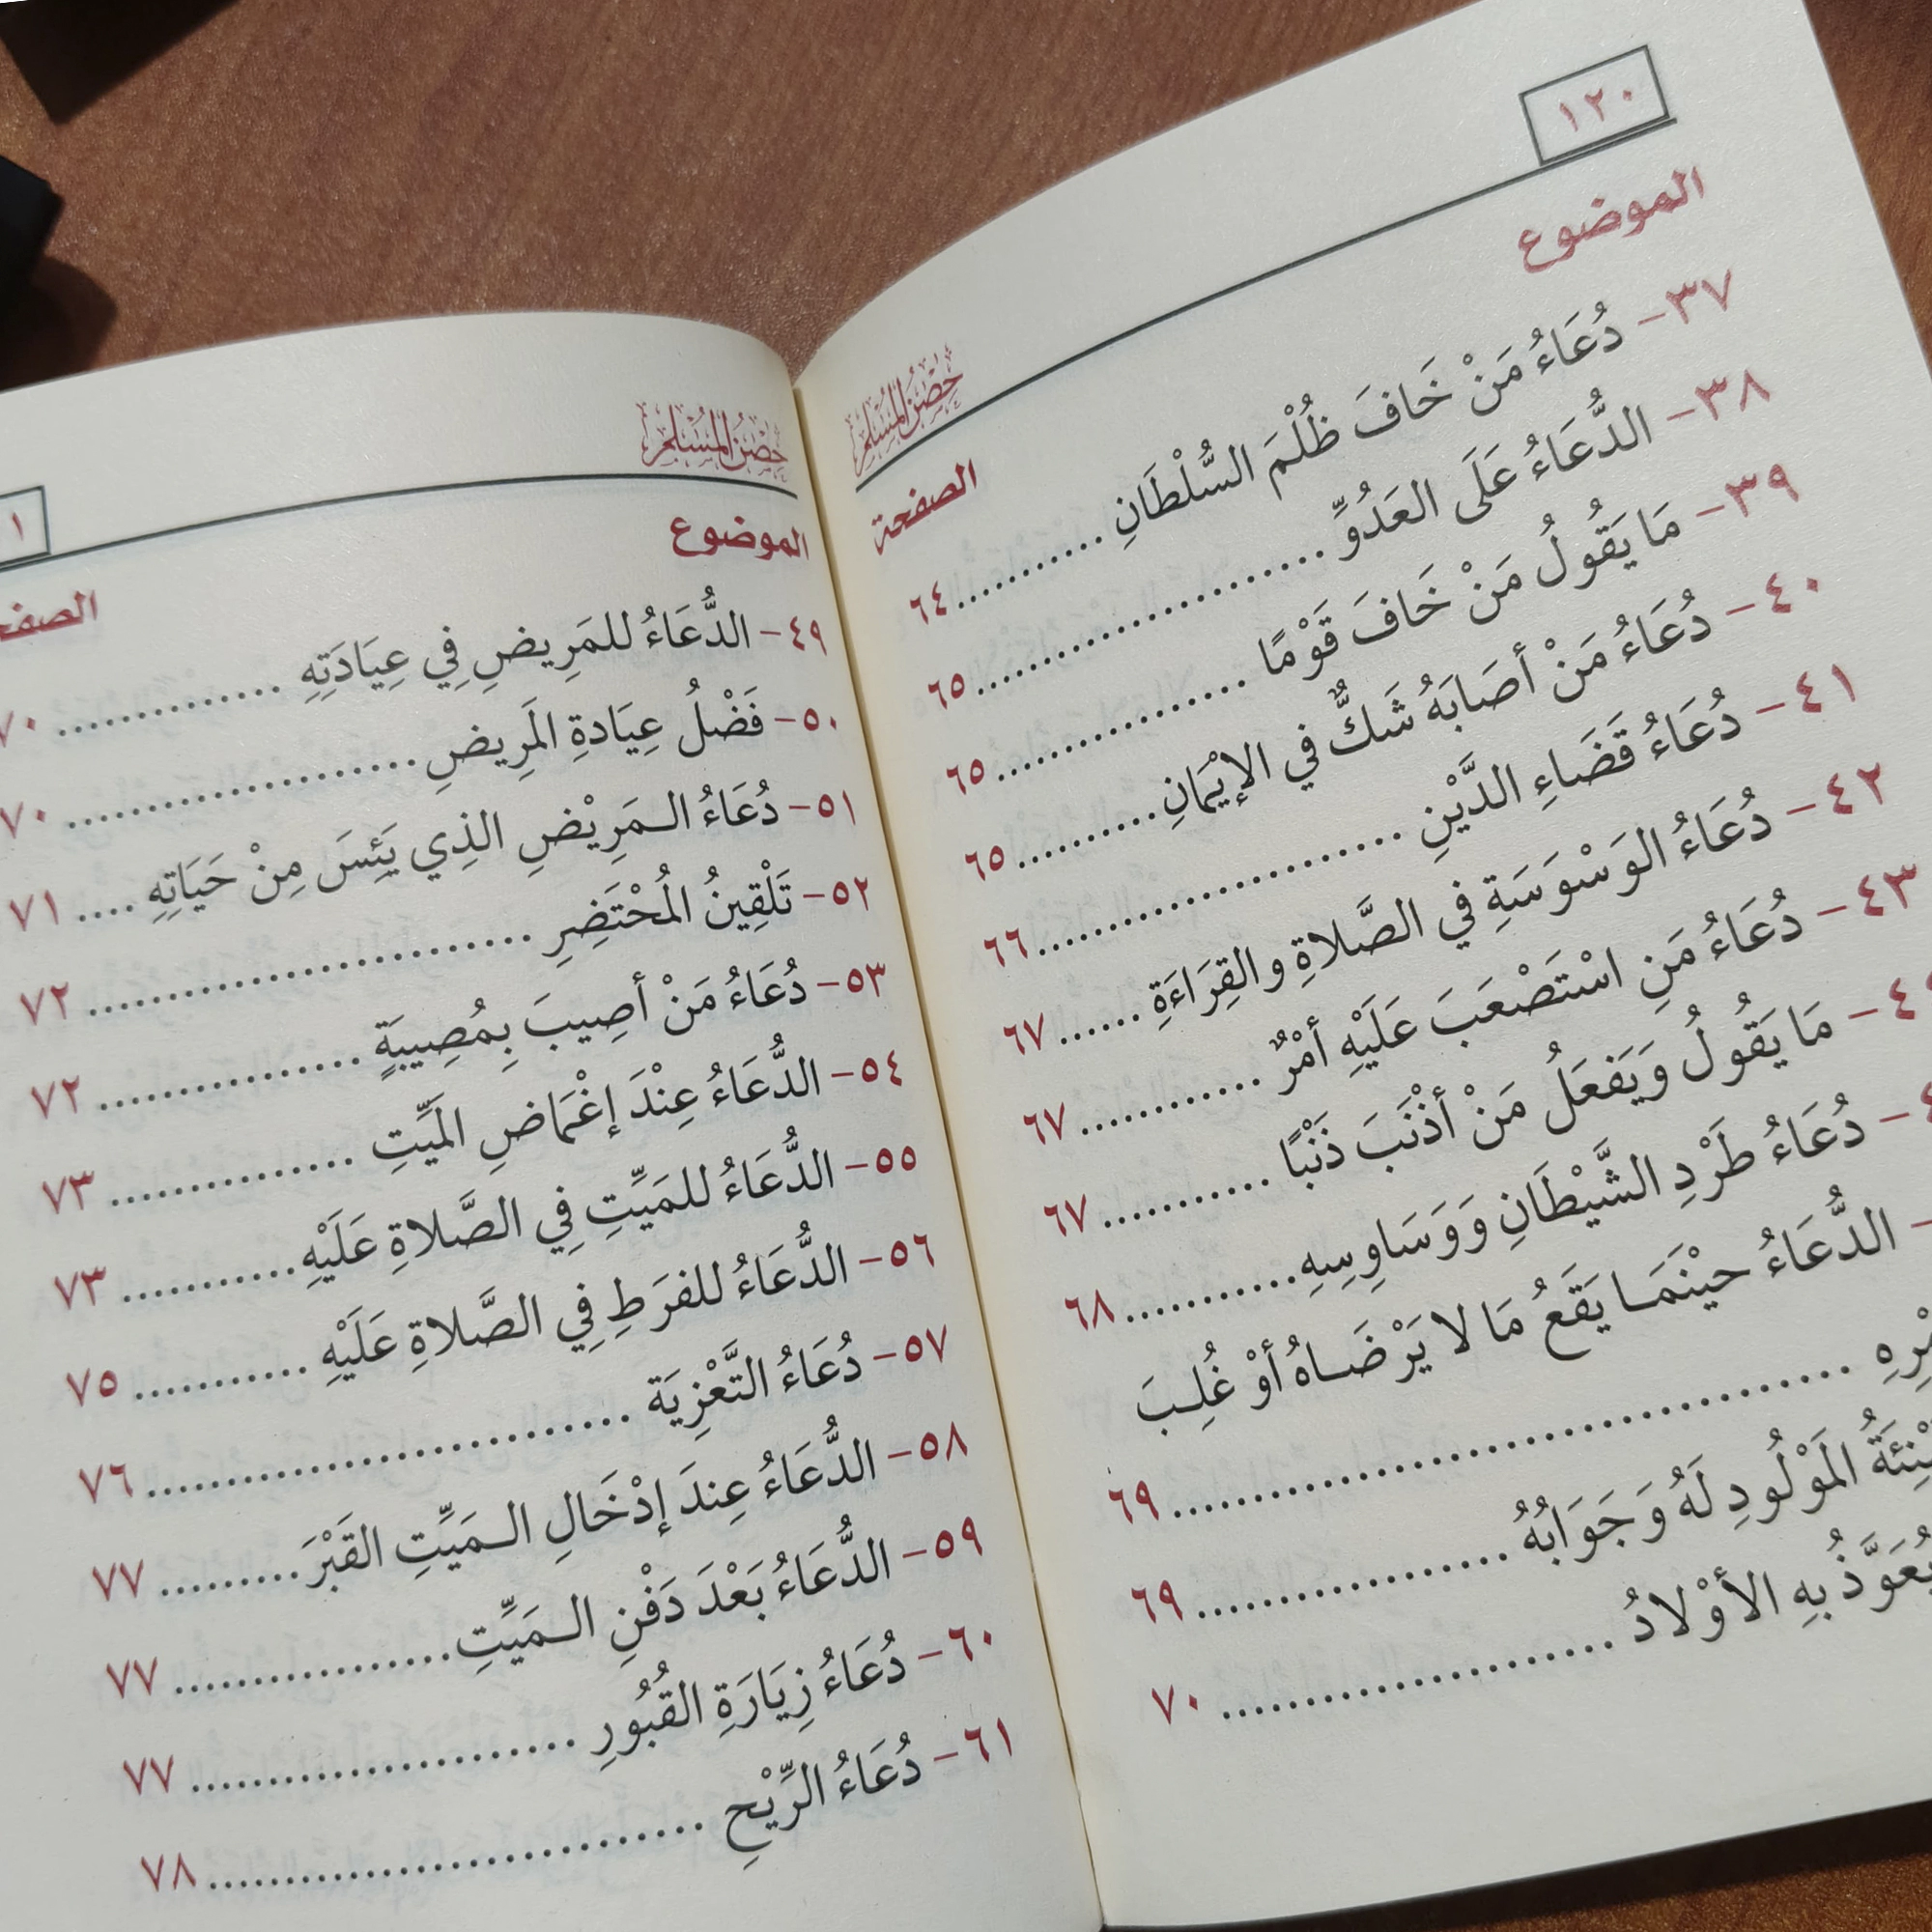 ١٢٠
حِصْنُ المُسْلِمِ
الموضوع
الصفحة
٣٧- دُعَاءُ مَنْ خَافَ ظُلْمَ السُّلْطَانِ .......... ٦٤
٣٨- الدُّعَاءُ عَلَى العَدُوِّ .......................... ٦٥
٣٩- مَا يَقُولُ مَنْ خَافَ قَوْمًا .................. ٦٥
٤٠- دُعَاءُ مَنْ أَصَابَهُ شَكٌّ في الإيْمَانِ .......... ٦٥
٤١- دُعَاءُ قَضَاءِ الدَّيْنِ .......................... ٦٦
٤٢- دُعَاءُ الوَسْوَسَةِ في الصَّلاةِ والقِرَاءَةِ ...... ٦٧
٤٣- دُعَاءُ مَنِ اسْتَصْعَبَ عَلَيْهِ أمْرٌ ............. ٦٧
- مَا يَقُولُ وَيَفعَلُ مَنْ أذْنَبَ ذَنْبًا ............ ٦٧
- دُعَاءُ طَرْدِ الشَّيْطَانِ وَوَسَاوِسِهِ ............ ٦٨
- الدُّعَاءُ حيْنَمَـا يَقَعُ مَا لا يَرْضَـاهُ أوْ غُلِـبَ
................................................ ٦٩
المَوْلُودِ لَهُ وَجَوَابُهُ .................. ٦٩
بِهِ الأوْلادُ ........................ ٧٠
حِصْنُ المُسْلِمِ
الموضوع
٤٩- الدُّعَاءُ للمَرِيضِ فِي عِيَادَتِهِ ............... ٧٠
٥٠- فَضْلُ عِيَادةِ المَرِيضِ ........................ ٧٠
٥١- دُعَاءُ الـمَرِيْضِ الذِي يَئِسَ مِنْ حَيَاتِهِ .... ٧١
٥٢- تَلْقِينُ المُحْتَضِرِ .............................. ٧٢
٥٣- دُعَاءُ مَنْ أصِيبَ بِمُصِيبَةٍ .................. ٧٢
٥٤- الدُّعَاءُ عِنْدَ إغْمَاضِ المَيِّتِ ................ ٧٣
٥٥- الدُّعَاءُ للمَيِّتِ فِي الصَّلاةِ عَلَيْهِ ............ ٧٣
٥٦- الدُّعَاءُ للفرَطِ فِي الصَّلاةِ عَلَيْهِ ............ ٧٥
٥٧- دُعَاءُ التَّعْزِيَة .............................. ٧٦
٥٨- الدُّعَاءُ عِندَ إدْخَالِ الـمَيِّتِ القَبْرَ ......... ٧٧
٥٩- الدُّعَاءُ بَعْدَ دَفْنِ الـمَيِّتِ .................. ٧٧
٦٠- دُعَاءُ زِيَارَةِ القُبُورِ ........................ ٧٧
٦١- دُعَاءُ الرِّيْحِ ................................ ٧٨